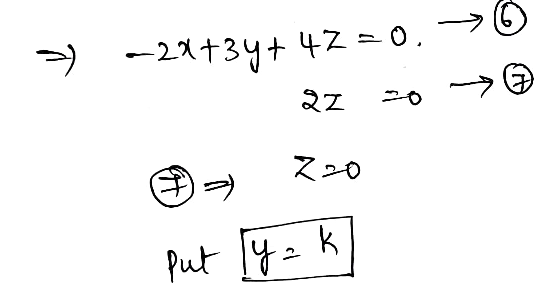 ⇒ -2x+3y+4z=0. → ⑥
2z =0 → ⑦
⑦ ⇒ z=0
Put y = k